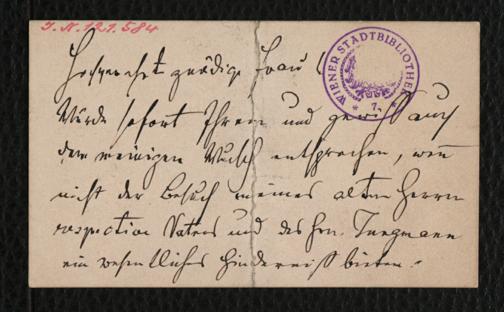 I. N. 121.584
WIENER STADTBIBLIOTHEK
* 7. *
Hochverehrt gnädige Frau!
Würde sofort Ihrem und gewiß auch
dem meinigen Wunsch entsprechen, wenn
nicht der Besuch meines alten Herrn
respective Vaters und des Hrn. Jungmann
ein wesentliches Hinderniß bieten.